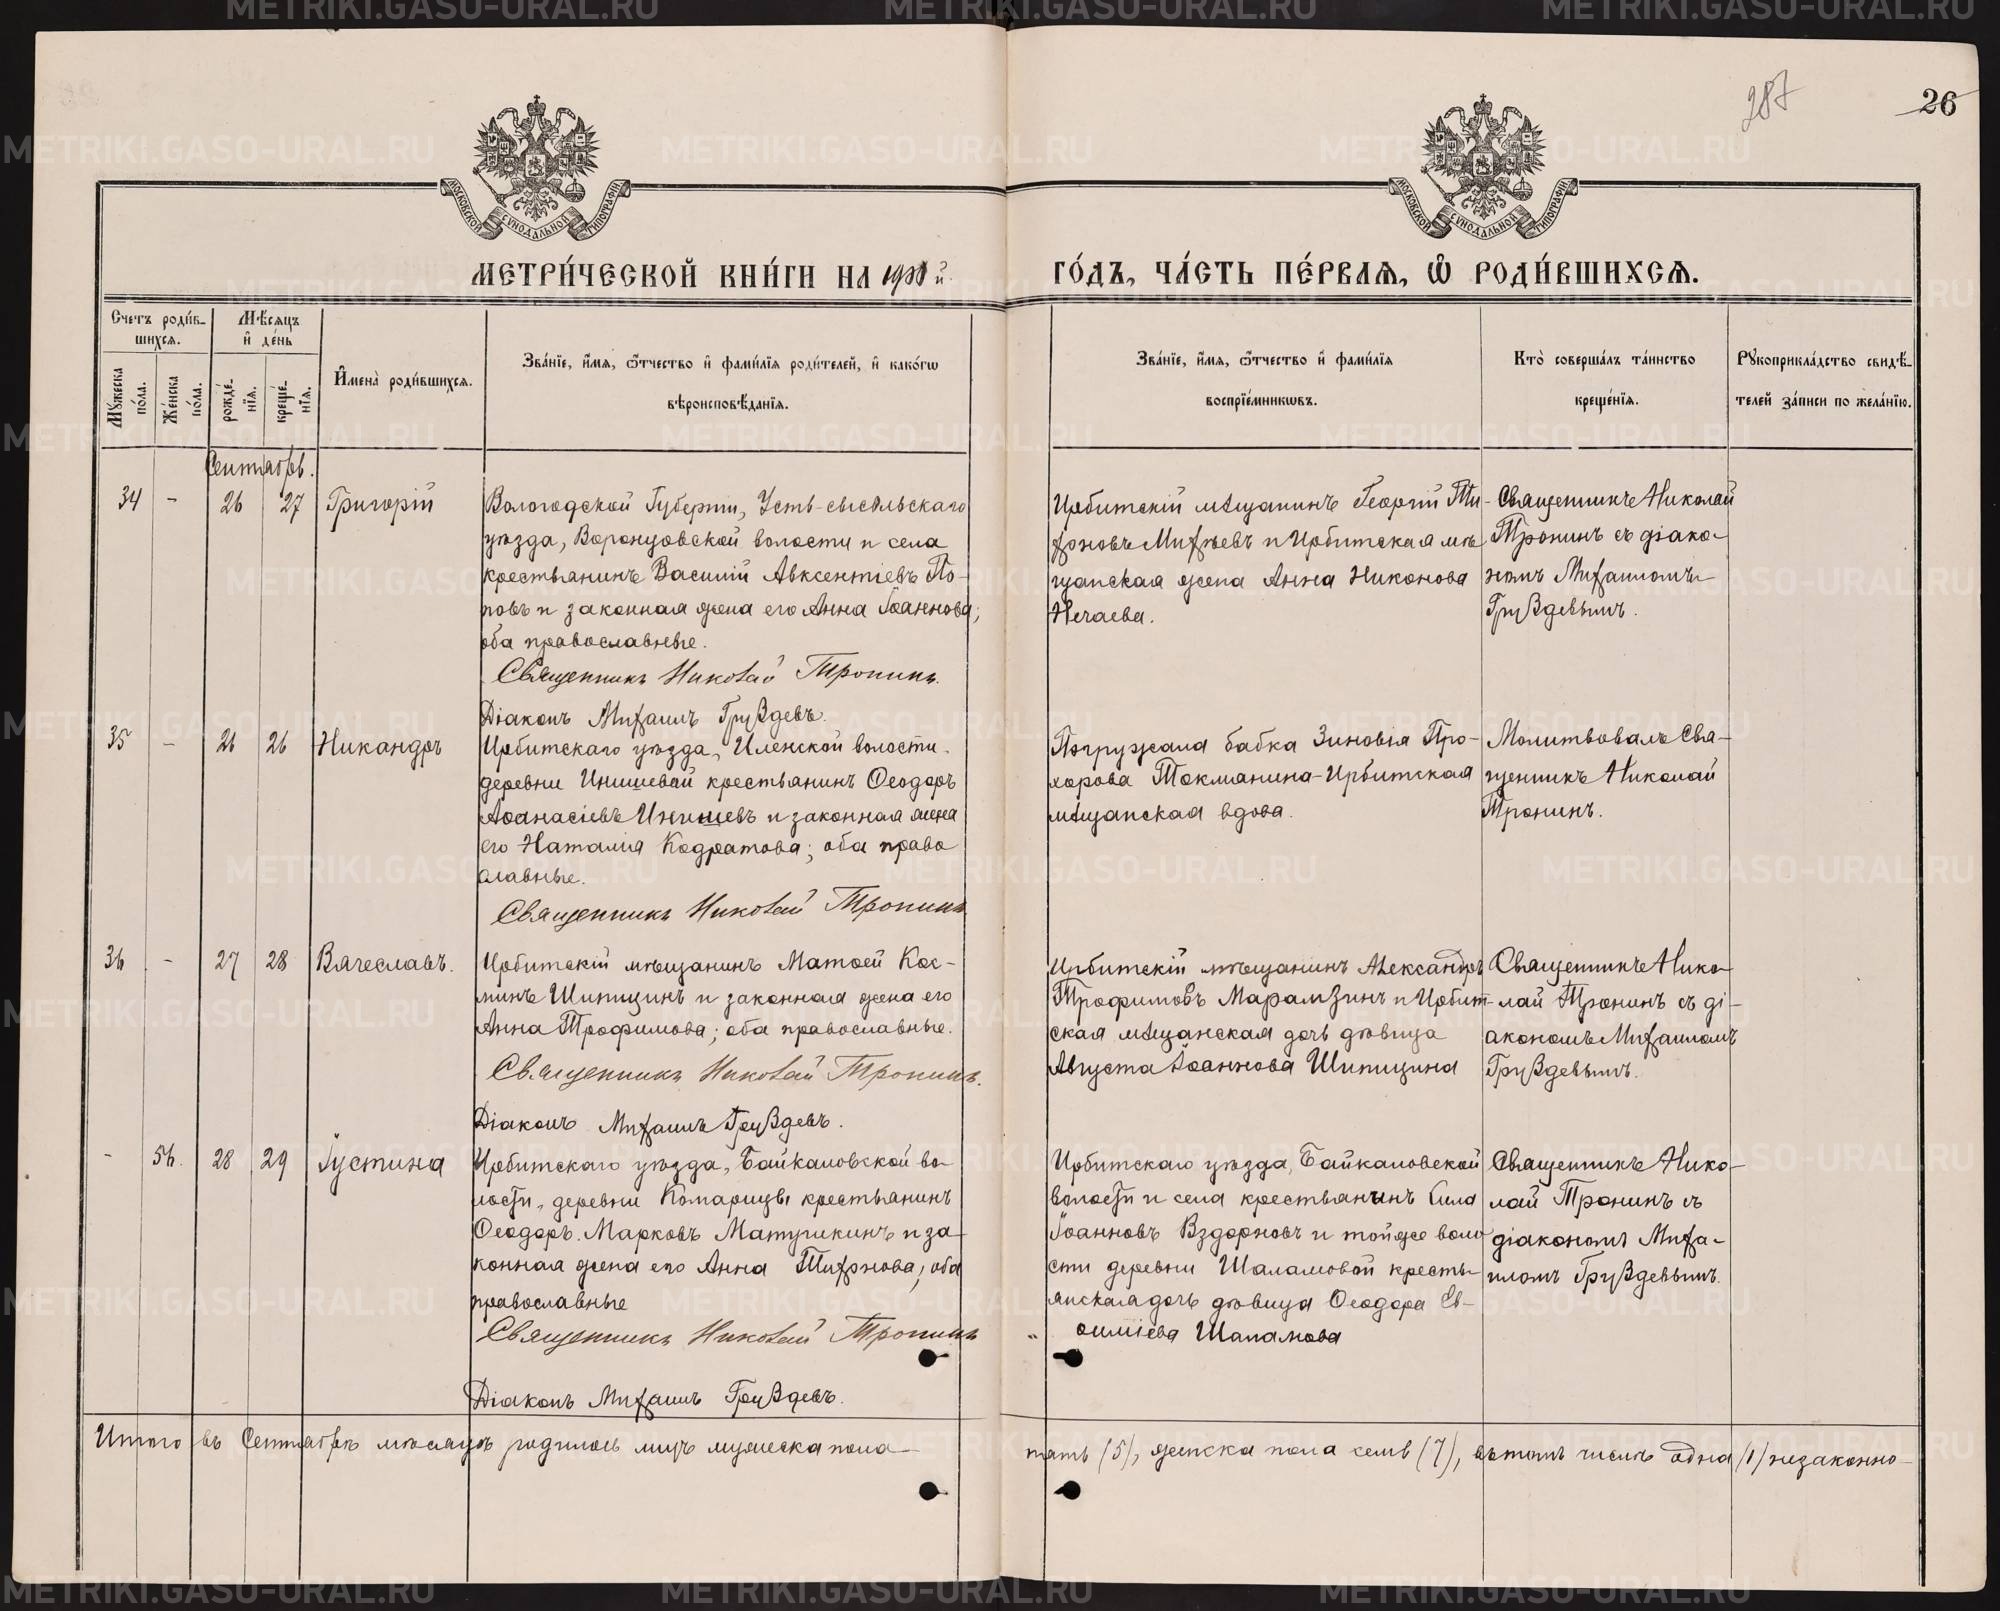 287
26
МОСКОВСКОЙ СѴНОДАЛЬНОЙ ТИПОГРАФІИ
МОСКОВСКОЙ СѴНОДАЛЬНОЙ ТИПОГРАФІИ
МЕТРИ́ЧЕСКОЙ КНИ́ГИ НА й
ГО́ДЪ, ЧА́СТЬ ПЕ́РВАѦ, Ѡ҆ РОДИ́ВШИХСѦ.
Счетъ роди́в-
шихсѧ.
Мѣсѧцъ
и҆ де́нь
Мꙋ́жеска
по́ла.
Же́нска
по́ла.
рожде́-
нїѧ.
креще́-
нїѧ.
И҆мена̀ роди́вшихсѧ.
Зва́нїе, и҆́мѧ, ѻ҆́тчество и҆ фами́лїѧ роди́телей, и҆ како́гѡ
вѣроисповѣ́данїѧ.
Зва́нїе, и҆́мѧ, ѻ҆́тчество и҆ фами́лїѧ
воспрїе́мникѡвъ.
Кто̀ соверша́лъ та́инство
креще́нїѧ.
Рꙋкоприкла́дство свидѣ́-
телей за́писи по жела́нїю.
Сентябрь.
34 - 26 27 Григорій
Вологодской Губерніи, Усть-сысольскаго
уѣзда, Воронцовской волости и села
крестьянинъ Василій Авксентіевъ По-
повъ и законная жена его Анна Іоаннова;
оба православные.
Священникъ Николай Тронинъ.
Діаконъ Михаилъ Груздевъ.
Ирбитскій мѣщанинъ Георгій Ти-
хоновъ Михѣевъ и Ирбитская мѣ
щанская жена Анна Никонова
Нечаева.
Священникъ Николай
Тронинъ съ діако-
номъ Михаиломъ
Груздевымъ.
35 - 26 26 Никандръ
Ирбитскаго уѣзда, Иленской волости
деревни Инишевой крестьянинъ Ѳеодоръ
Аѳанасіевъ Инишевъ и законная жена
его Наталія Кодратова; оба право
славные.
Священникъ Николай Тронинъ
Погружала бабка Зиновія Про-
хорова Токманина-Ирбитская
мѣщанская вдова.
Молитвовалъ Свя-
щенникъ Николай
Тронинъ.
36 - 27 28 Вячеславъ.
Ирбитскій мѣщанинъ Матѳей Кос-
минъ Шипицинъ и законная жена его
Анна Трофимова; оба православные.
Священникъ Николай Тронинъ.
Діаконъ Михаилъ Груздевъ.
Ирбитскій мѣщанинъ Александръ
Трофимовъ Марамзинъ и Ирбит-
ская мѣщанская дочь дѣвица
Августа Іоаннова Шипицина
Священникъ Нико
лай Тронинъ съ ді-
акономъ Михаиломъ
Груздевымъ.
- 56. 28 29 Іустина
Ирбитскаго уѣзда, Байкаловской во-
лости, деревни Комарицы крестьянинъ
Ѳеодоръ Марковъ Матушкинъ и за-
конная жена его Анна Тихонова; оба
православные
Священникъ Николай Тронинъ
Діаконъ Михаилъ Груздевъ.
Ирбитскаго уѣзда, Байкаловской
волости и села крестьянинъ Сила
Іоанновъ Вздорновъ и той же воло
сти деревни Шаламовой кресть-
янская дочь дѣвица Ѳеодора Ев-
ѳиміева Шаламова
Священникъ Нико-
лай Тронинъ съ
діакономъ Миха-
иломъ Груздевымъ.
Итого въ Сентябрѣ мѣсяцѣ родилось мужеска пола
пять (5), женска пола семь (7), въ томъ числѣ одна (1) незаконно-